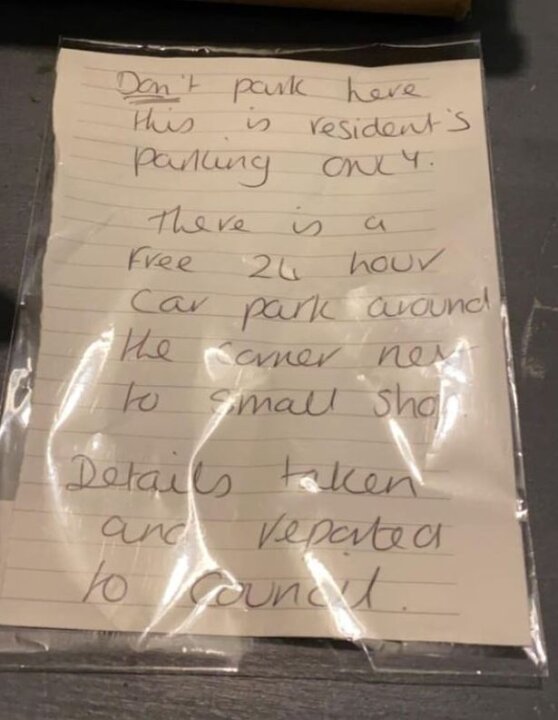 Don't park here
this is resident's
parking only.
There is a
Free 24 hour
Car park around
the corner next
to small shop.
Details taken
and reported
to council.